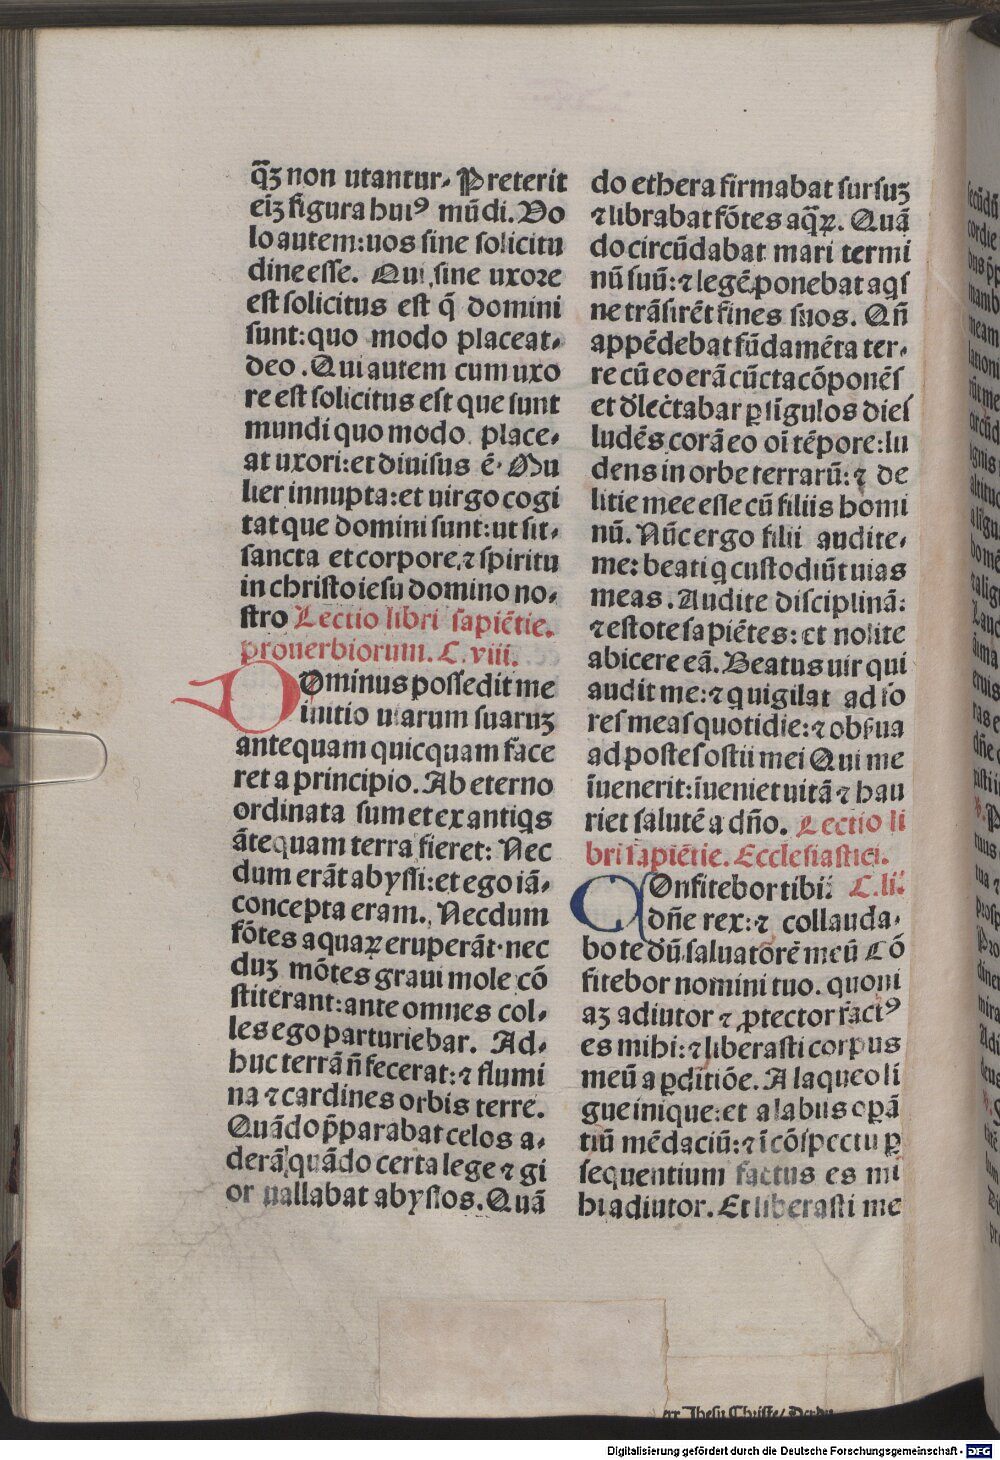 q̃ꝫ non utantur. Preterit
eiꝫ figura huiꝰ mũdi. Vo
lo autem: uos sine solicitu
dine esse. Qui sine uxore
est solicitus est q̃ domini
sunt: quo modo placeat
deo. Qui autem cum uxo
re est solicitus est que sunt
mundi quo modo place
at uxori: et diuisus ē. Mu
lier innupta: et uirgo cogi
tat que domini sunt: ut sit
sancta et corpore, ⁊ spiritu
in christo iesu domino no
stro Lectio libri sapiẽtie.
prouerbiorum. C. viii.
Dominus possedit me
initio uiarum suaruꝫ
antequam quicquam face
ret a principio. Ab eterno
ordinata sum et ex antiqs
ãtequam terra fieret: Nec
dum erãt abyssi: et ego iã
concepta eram. Necdum
fõtes aquaꝝ eruperãt. nec
duꝫ mõtes graui mole cõ
stiterant: ante omnes col
les ego parturiebar. Ad
huc terrã ñ fecerat: ⁊ flumi
na ⁊ cardines orbis terre.
Quãdo p̃parabat celos a
derã quãdo certa lege ⁊ gi
or uallabat abyssos. Quã
do ethera firmabat sursuꝫ
⁊ librabat fõtes aq̃ꝝ. Quã
do circũdabat mari termi
nũ suũ: ⁊ legẽ ponebat aqs
ne trãsirẽt fines suos. Qñ
appẽdebat fũdamẽta ter
re cũ eo erã cũcta cõponẽs
et dlectabar ꝑ sĩgulos dies
ludẽs corã eo oĩ tẽpore: lu
dens in orbe terrarũ: ⁊ de
litie mee esse cũ filiis homi
nũ. Nũc ergo filii audite
me: beati q custodiũt uias
meas. Audite disciplinã:
⁊ estote sapiẽtes: et nolite
abicere eã. Beatus uir qui
audit me: ⁊ qui gilat ad fo
res meas quotidie: ⁊ obsua
ad postes ostii mei Qui me
ĩuenerit: ĩueniet uitã ⁊ hau
riet salutẽ a dño. Lectio li
bri sapiẽtie. Ecclesiastici.
Confitebor tibi: C. li.
dñe rex: ⁊ collauda
bo te dũ saluatõrẽ meũ Cõ
fitebor nomini tuo. quoni
aꝫ adiutor ⁊ ꝓtector factꝰ
es mihi: ⁊ liberasti corpus
meũ a ꝑditiõe. A laqueo li
gue inique: et a labiis opã
tiũ mẽdaciũ: ⁊ ĩ cõspectu ꝑ
sequentium factus es mi
hi adiutor. Et liberasti me
Jhesu Christe
Digitalisierung gefördert durch die Deutsche Forschungsgemeinschaft - DFG